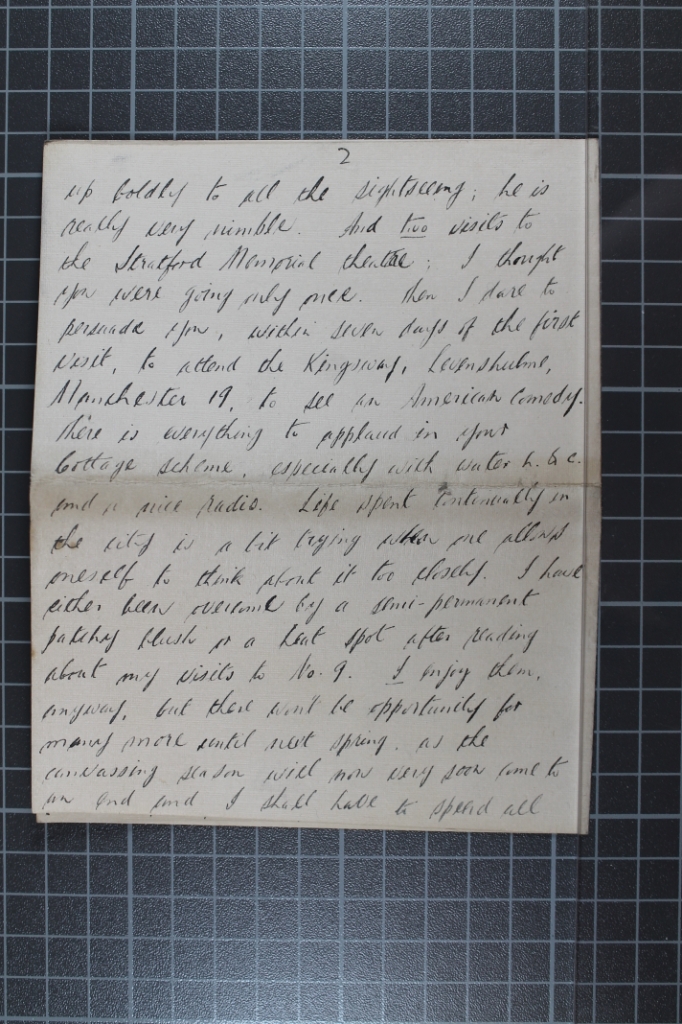 2
up boldly to all the sightseeing; he is
really very nimble. And two visits to
the Stratford Memorial theatre; I thought
you were going only once. Then I dare to
persuade you, within seven days of the first
visit, to attend the Kingsway, Levenshulme,
Manchester 19, to see an American comedy.
There is everything to applaud in your
Cottage scheme, especially with water h. & c.
and a nice radio. Life spent continually in
the city is a bit trying when one allows
oneself to think about it too closely. I have
either been overcome by a semi-permanent
patchy blush or a heat spot after reading
about my visits to No. 9. I enjoy them,
anyway, but there won't be opportunity for
many more until next spring, as the
canvassing season will now very soon come to
an end and I shall have to spend all